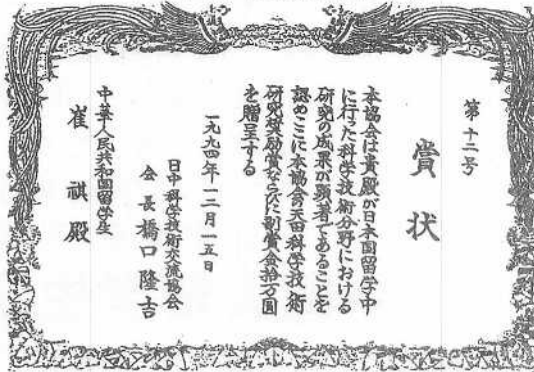 第十二号
賞状
本協会は貴殿が日本国留学中
に行った科学技術分野における
研究の成果が顕著であることを
認めここに本協会天田科学技術
研究奨励賞ならびに副賞金拾万圓
を贈呈する
一九九四年一二月一五日
日中科学技術交流協会
会長 橋口隆吉
中華人民共和国留学生
崔祺殿